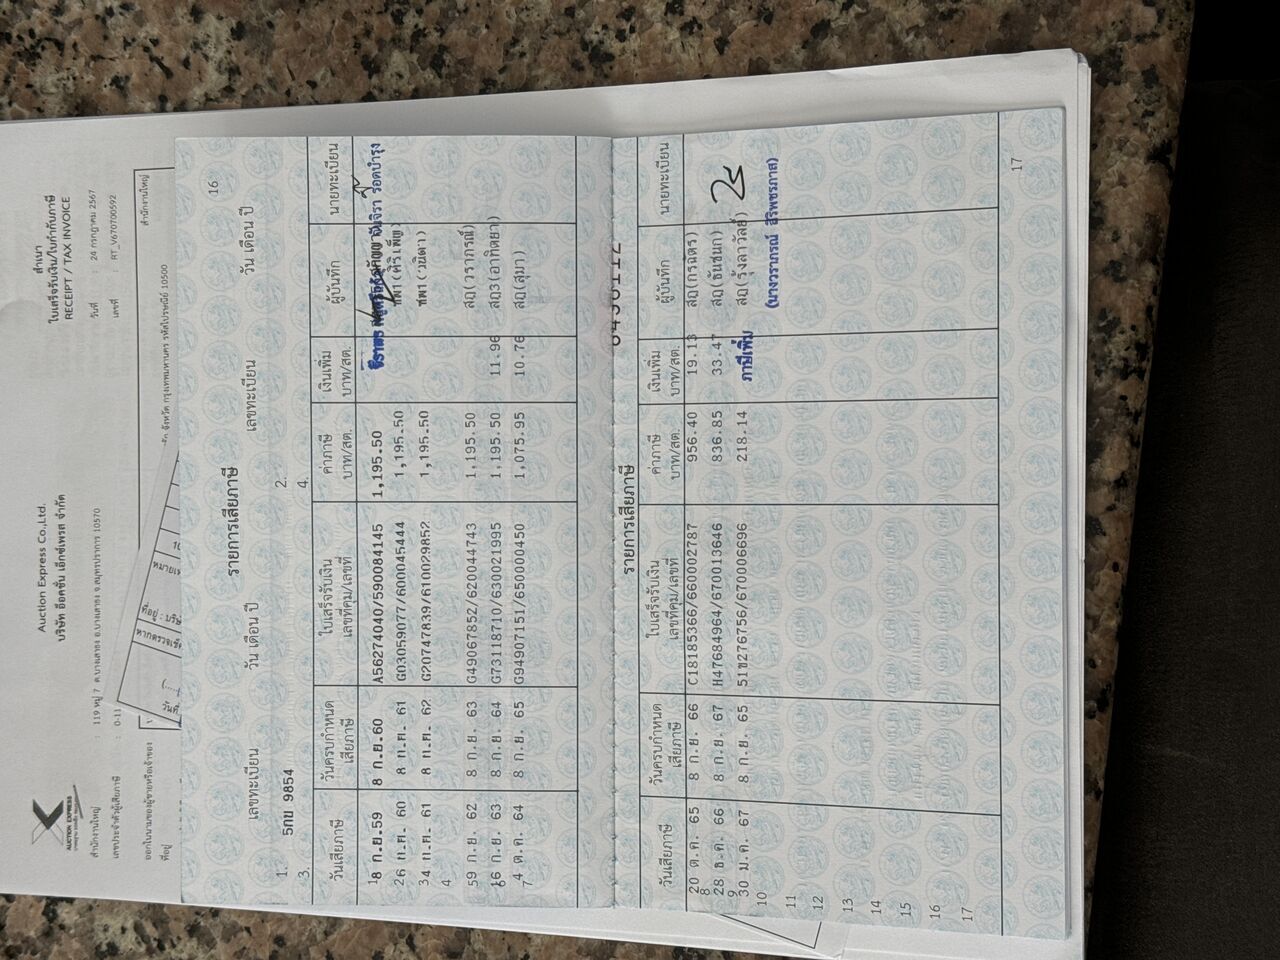 สำเนา
ใบเสร็จรับเงิน/ใบกำกับภาษี
RECEIPT / TAX INVOICE
วันที่ : 24 กรกฎาคม 2567
เลขที่ : RT_V670700592
AUCTION EXPRESS
Auction Express Co.,Ltd.
บริษัท อ๊อคชั่น เอ็กซ์เพรส จำกัด
สำนักงานใหญ่ : 119 หมู่ 7 ต.บางเสาธง อ.บางเสาธง จ.สมุทรปราการ 10570
เลขประจำตัวผู้เสียภาษี : 0-11
ออกในนามของผู้ขายหรือเจ้าของ
สำนักงานใหญ่
ที่อยู่
จังหวัด กรุงเทพมหานคร รหัสไปรษณีย์ 10500
ที่อยู่ : บริษั
หากตรวจเช็ค
วันที่
16
รายการเสียภาษี
เลขทะเบียน วัน เดือน ปี เลขทะเบียน วัน เดือน ปี
1. 5กย 9854 2.
3. 4.
วันเสียภาษี วันครบกำหนดเสียภาษี ใบเสร็จรับเงิน เลขที่คุม/เลขที่ ค่าภาษี บาท/สต. เงินเพิ่ม บาท/สต. ผู้บันทึก นายทะเบียน
1 8 ก.ย.59 8 ก.ย.60 A56274040/590084145 1,195.50 จันจิรา รอดบำรุง
2 6 ก.ค. 60 8 ก.ค. 61 G03059077/600045444 1,195.50
3 4 ก.ค. 61 8 ก.ค. 62 G20747839/610029852 1,195.50 (วนิดา)
4
5 9 ก.ย. 62 8 ก.ย. 63 G49067852/620044743 1,195.50 สฎ(วราภรณ์)
6 6 ก.ย. 63 8 ก.ย. 64 G73118710/630021995 1,195.50 11.96 สฎ3(อาทิตยา)
7 4 ต.ค. 64 8 ก.ย. 65 G94907151/650000450 1,075.95 10.76 สฎ(สุมา)
รายการเสียภาษี
วันเสียภาษี วันครบกำหนดเสียภาษี ใบเสร็จรับเงิน เลขที่คุม/เลขที่ ค่าภาษี บาท/สต. เงินเพิ่ม บาท/สต. ผู้บันทึก นายทะเบียน
8 20 ต.ค. 65 8 ก.ย. 66 C18185366/660002787 956.40 19.13 สฎ(กรฉัตร)
9 28 ธ.ค. 66 8 ก.ย. 67 H47684964/670013646 836.85 33.47 สฎ(ธันชนก)
30 ม.ค. 67 8 ก.ย. 65 51ข276756/670006696 218.14 ภาษีเพิ่ม สฎ(รุ้งลาวัลย์)
10
(นางวราภรณ์ สิริพชรภาส)
11
12
13
14
15
16
17
17